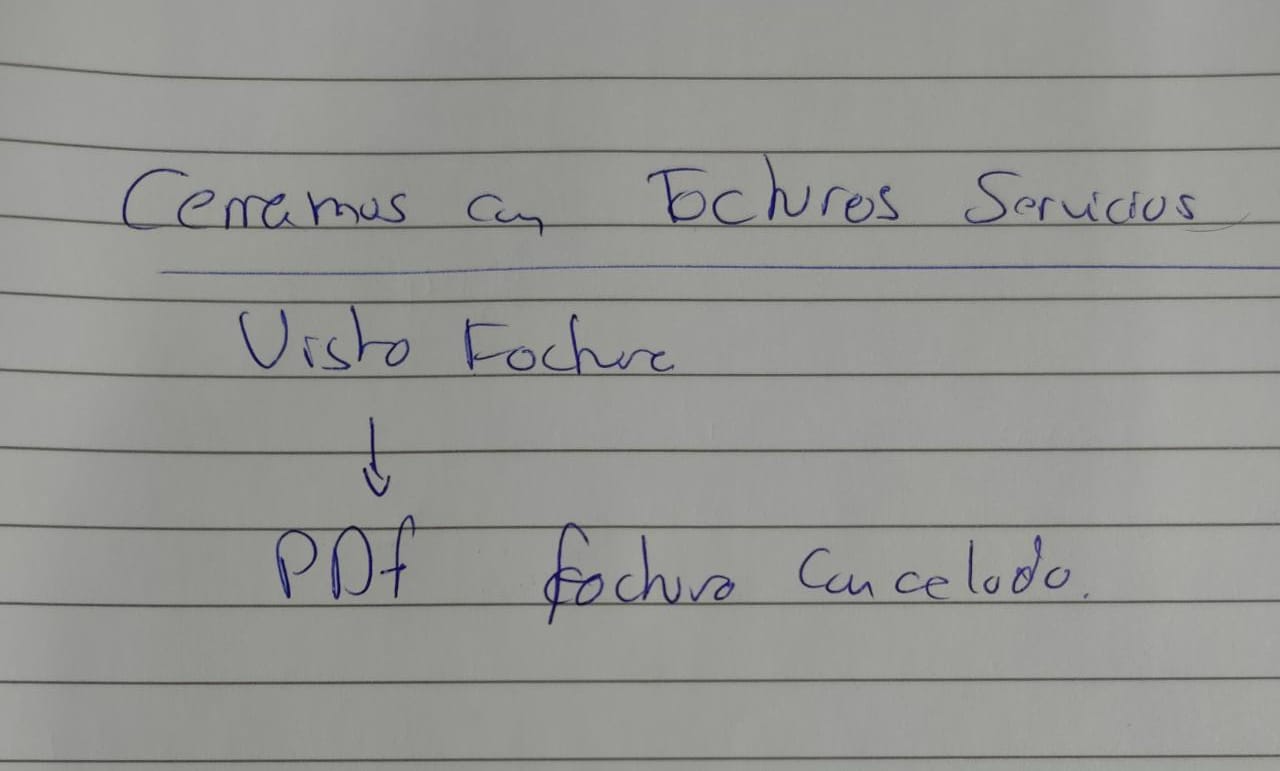 Cerramos con Facturas Servicios
Vista Factura
↓
PDF factura Cancelada.